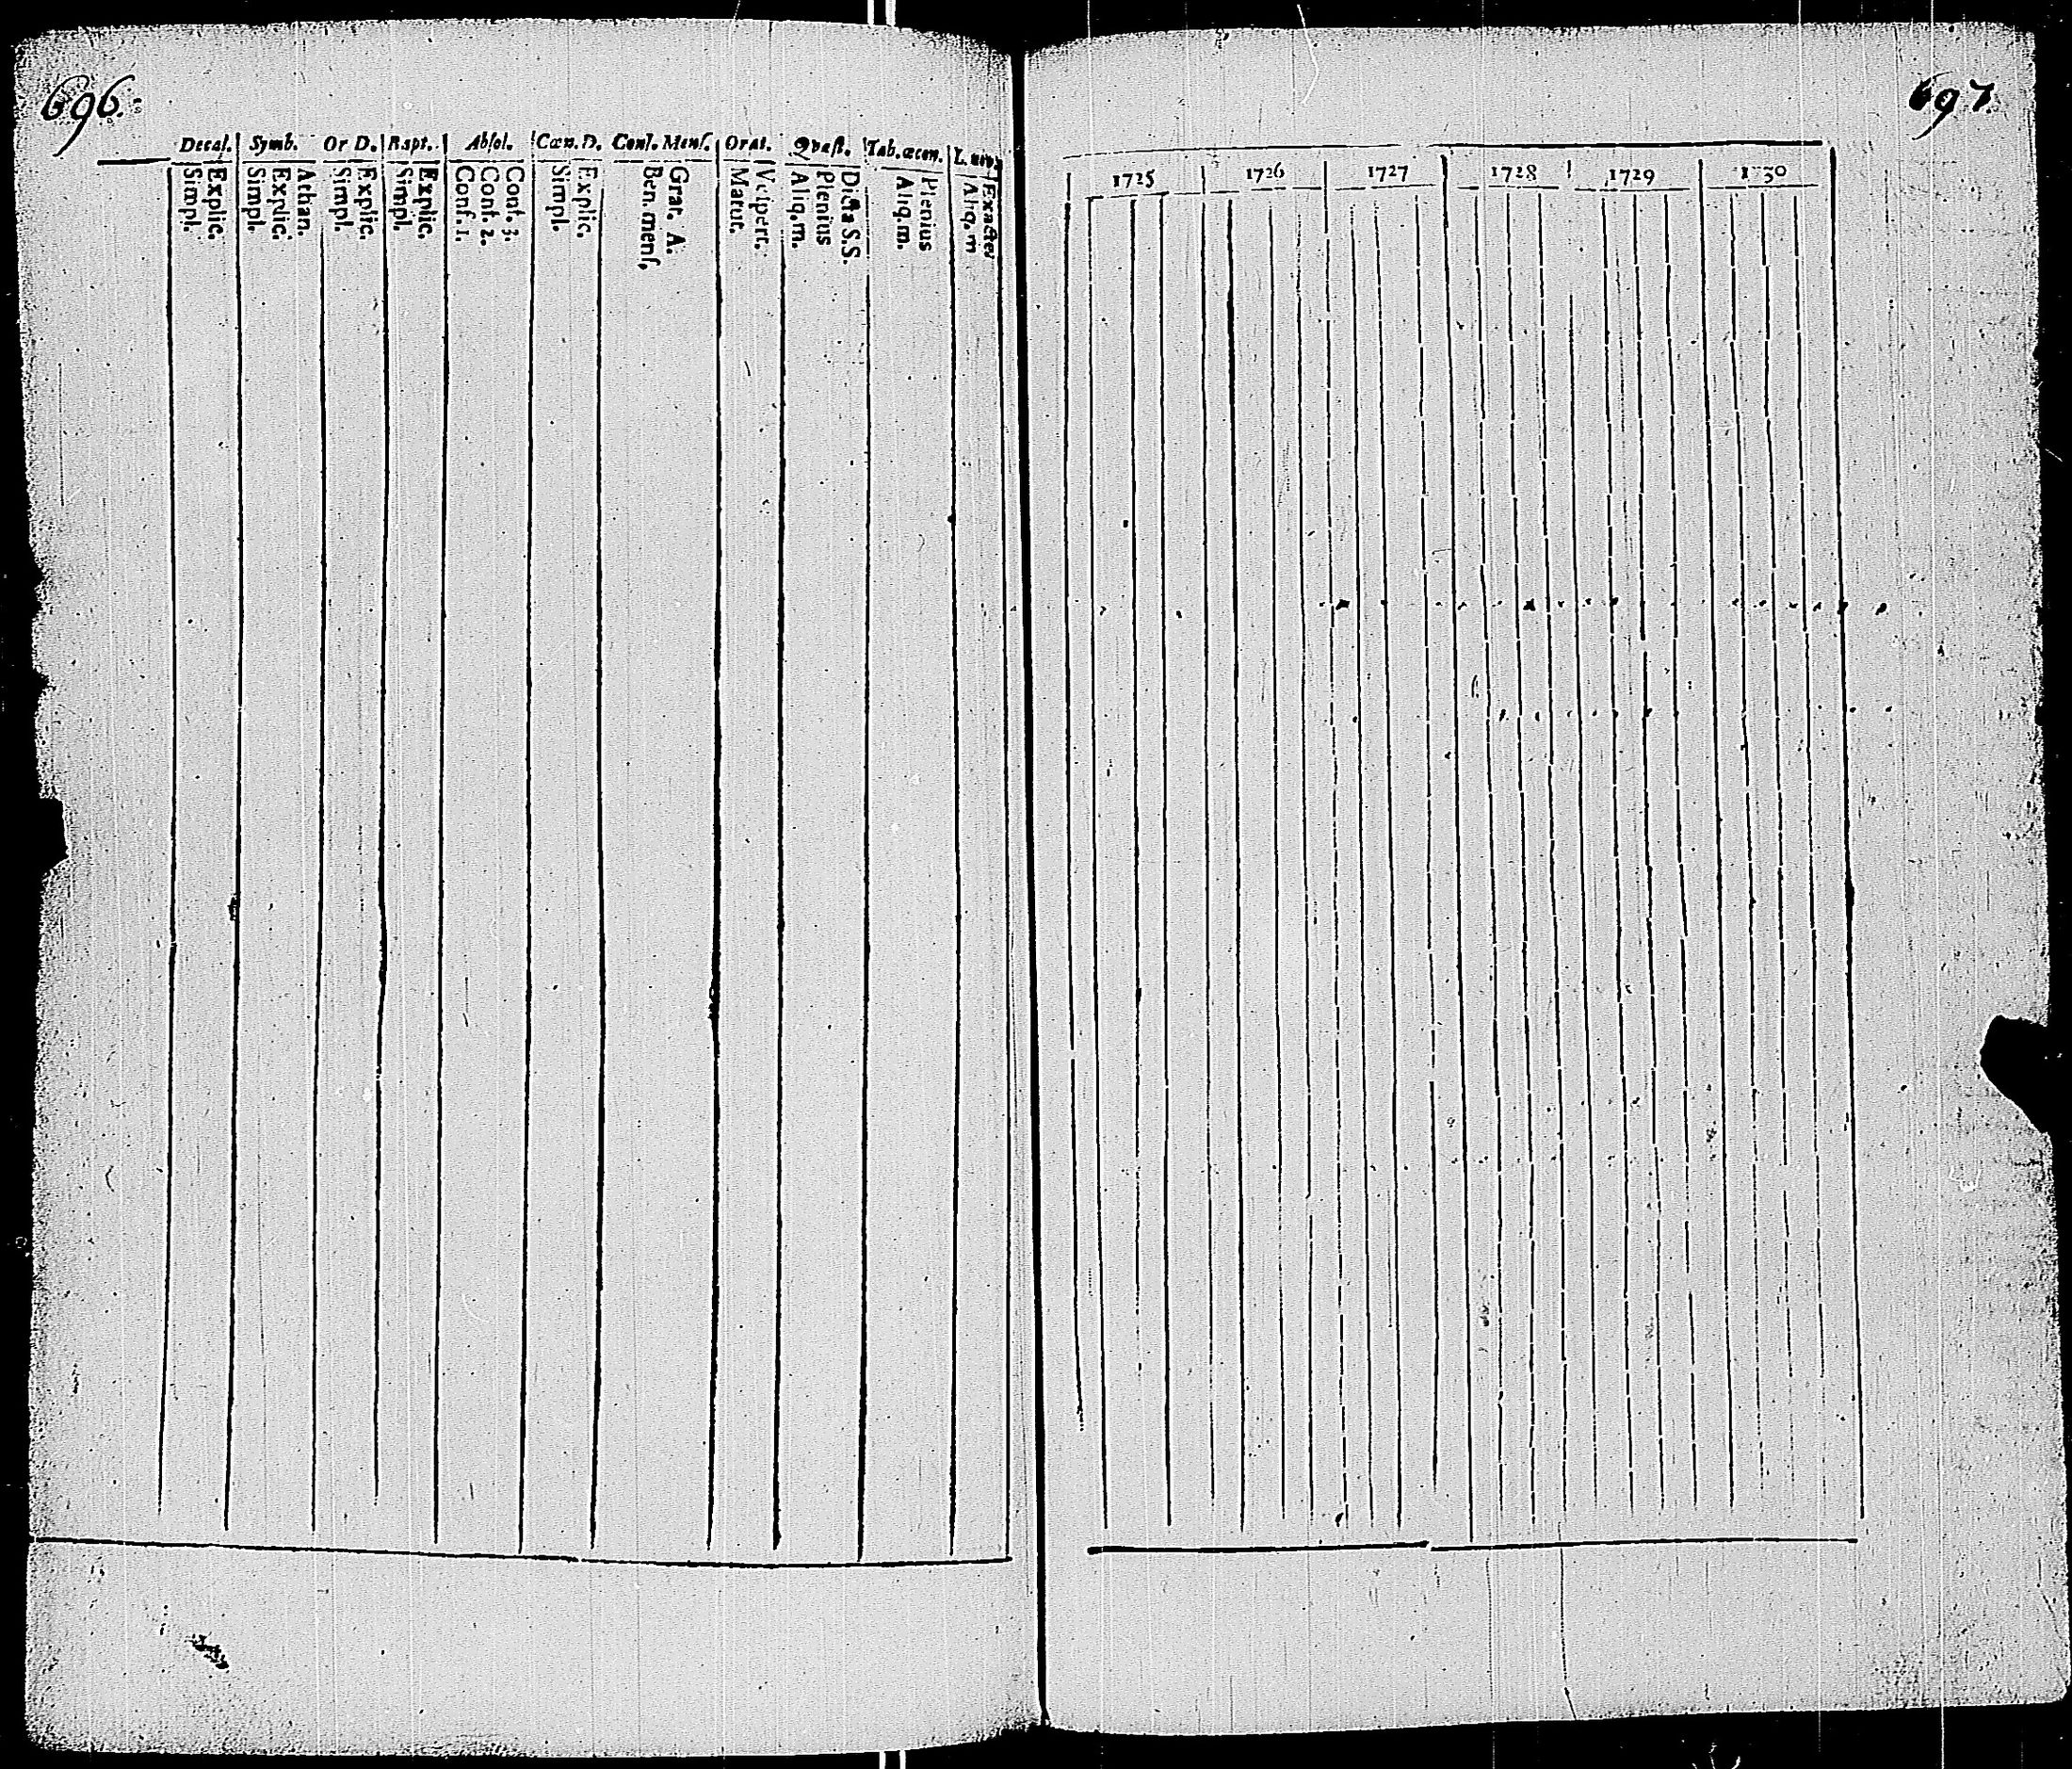 696.
697.
Decal. Symb. Or D. Bapt. Absol. Cœn. D. Conf. Menſ. Orat. Qvæſt. Tab. œcon. L.
Explic.
Simpl.
Athan.
Explic.
Simpl.
Explic.
Simpl.
Explic.
Simpl.
Conf. 3.
Conf. 2.
Conf. 1.
Explic.
Simpl.
Grat. A.
Ben. menſ.
Veſpert.
Matut.
Dicta S.S.
Plenius
Aliq. m.
Plenius
Aliq. m.
Exacte
Aliq. m
1725 1726 1727 1728 1729 1730